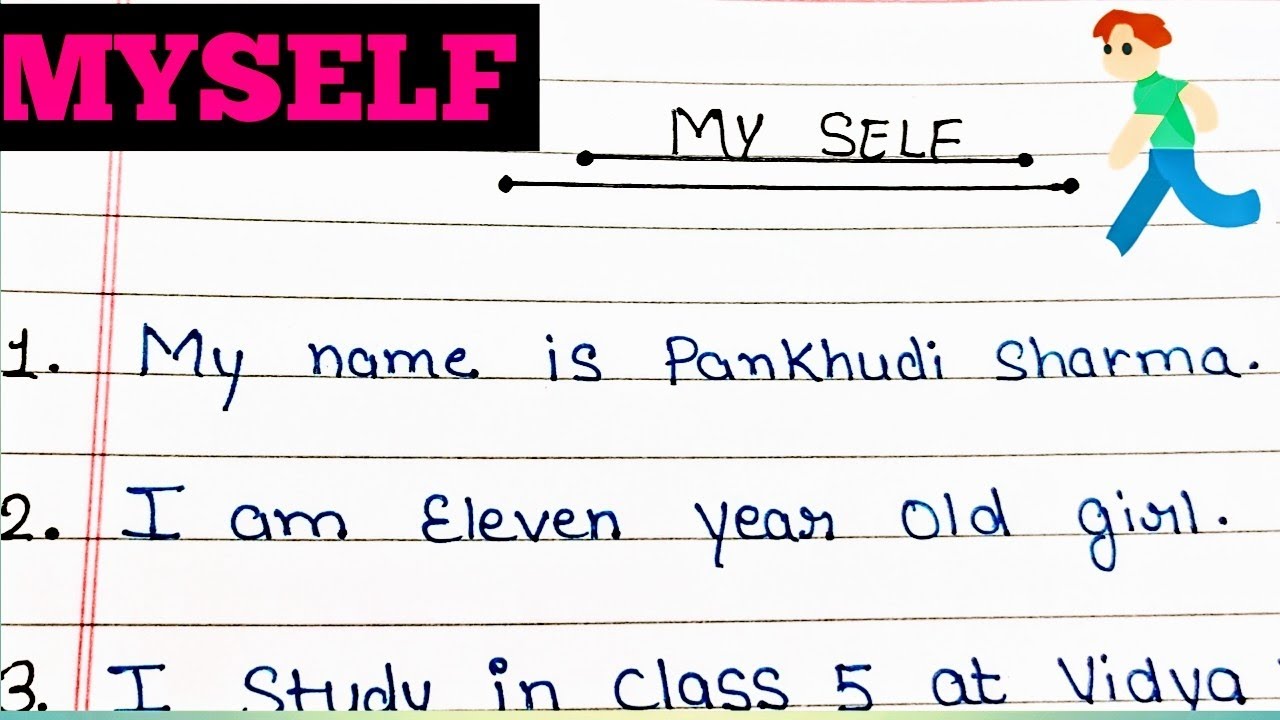 MYSELF
MY SELF
1. My name is Pankhudi Sharma.
2. I am Eleven year old girl.
3. I Study in Class 5 at Vidya